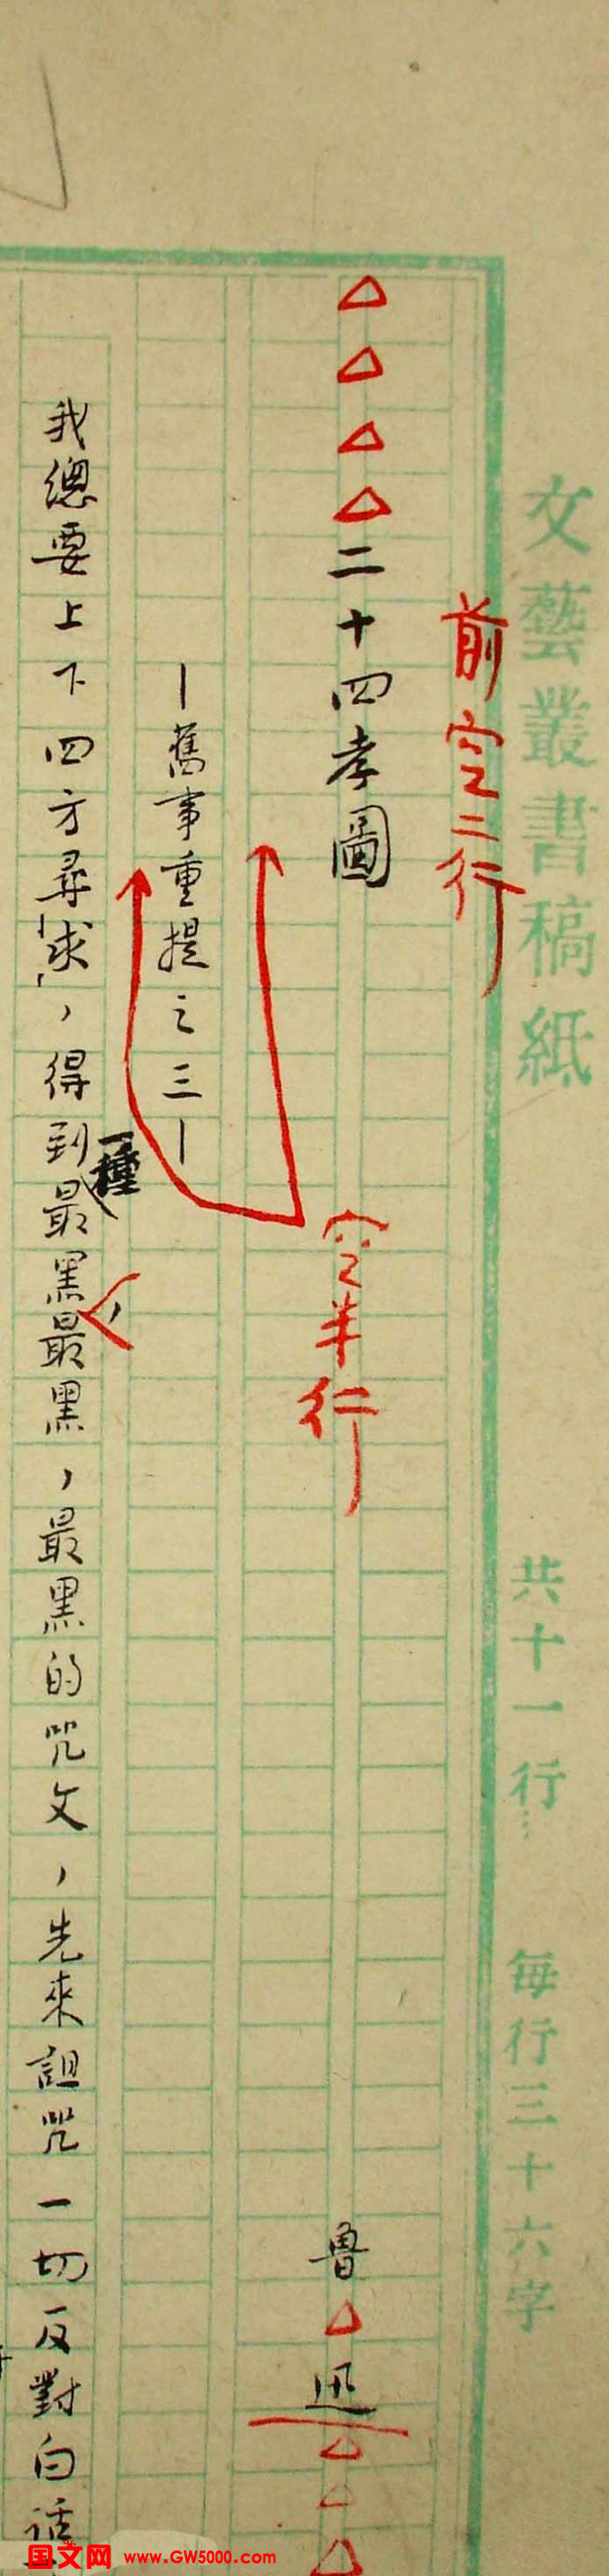 文藝叢書稿紙 共十一行 每行三十六字
前空二行
△△△△二十四孝圖 魯△迅△△△
空半行
—舊事重提之三—
我總要上下四方尋求，得到一種最黑，最黑，最黑的咒文，先來詛咒一切反對白話
国文网 www.GW5000.com